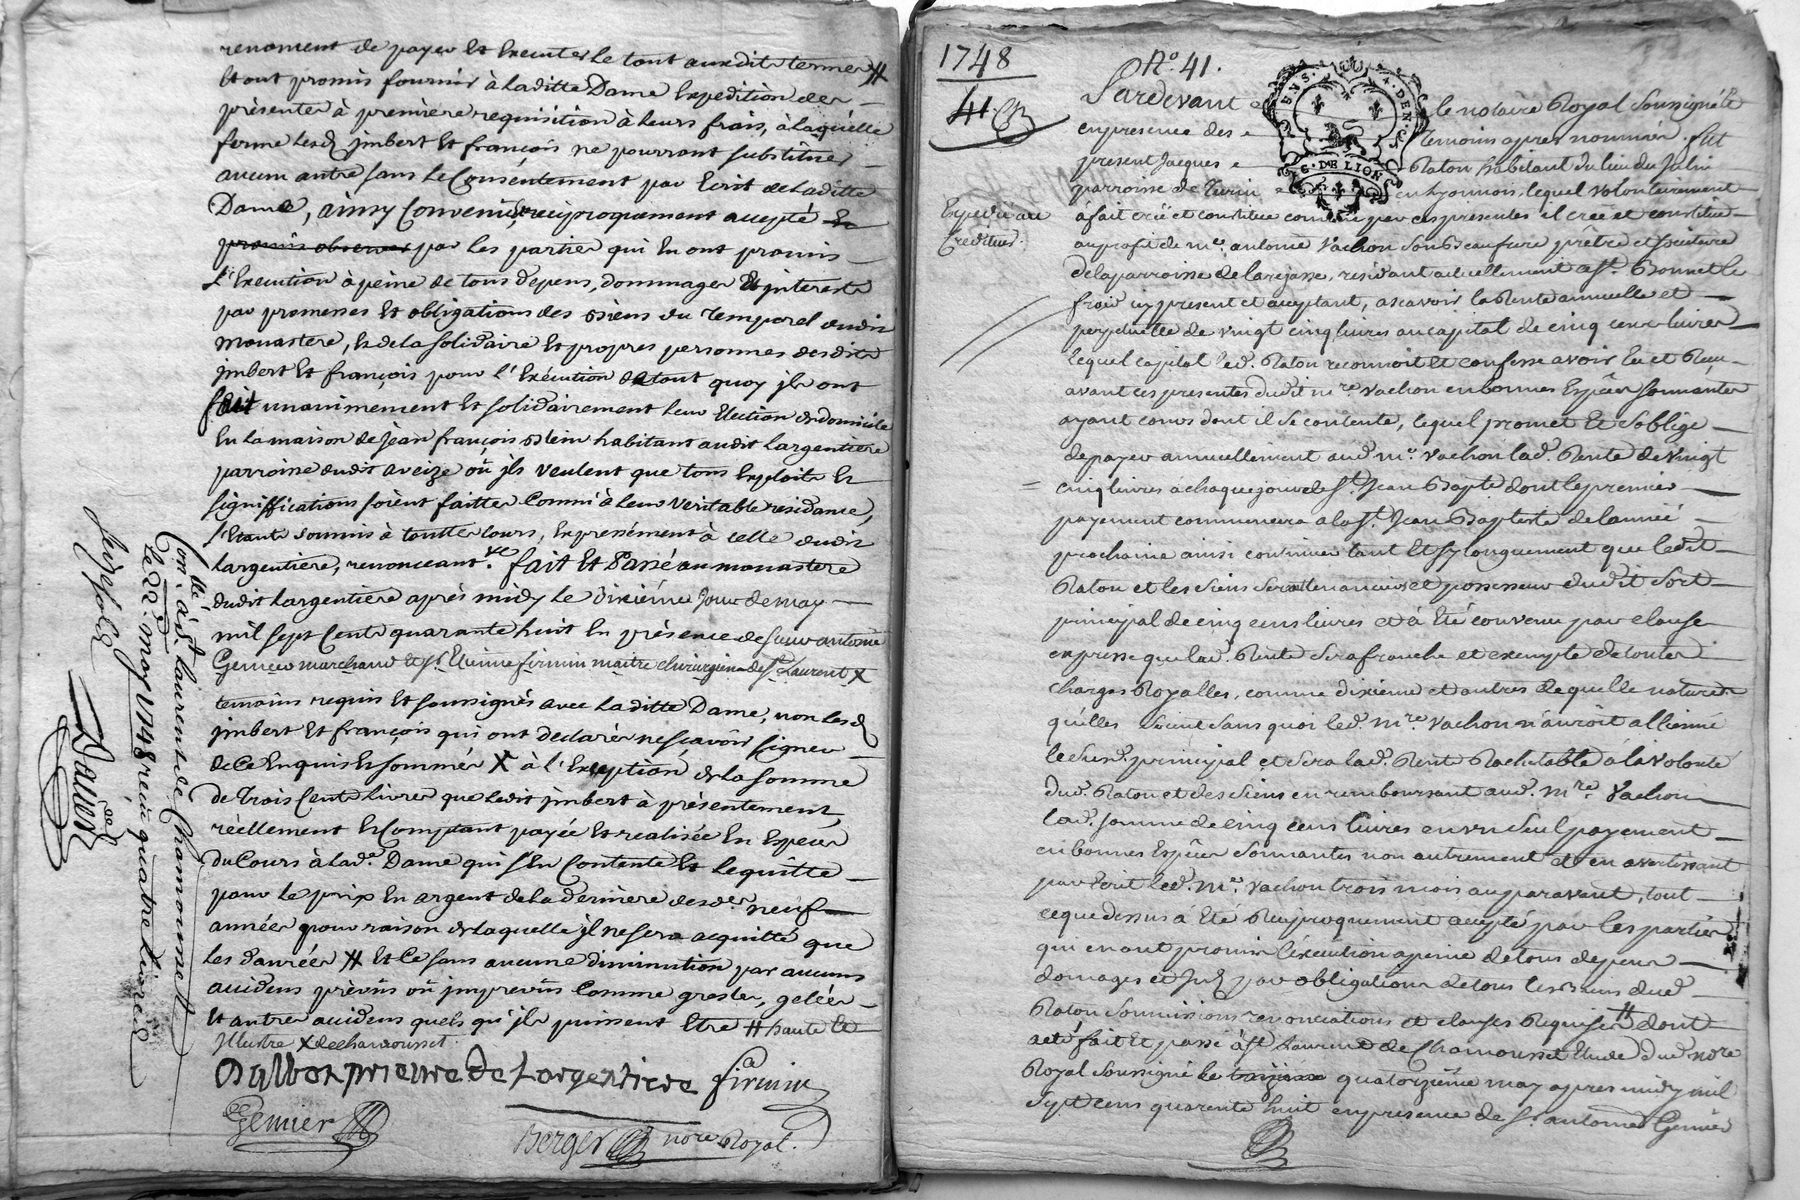 renoment de payer et executer le tout auxdits termes #
et ont promis fournir à laditte Dame Expedition des
présentes à première requisition à leurs frais, à laquelle
ferme lesd. jmbert et françois ne pourront substituer
aucun autre sans le Consentement par Ecrit de laditte
Dame, ainsy Convenu, reciproquement accepté et
promis observer par les parties qui en ont promis
l'Execution à peine de tous depens, dommages et jnterests
par promesses et obligations des Biens du temporel dudit
monastere, et de la solidaire et propres personnes desdits
jmbert et françois pour l'Exécution de tout quoy jls ont
fait unanimement et solidairement leur Election de domicile
En la maison de jean françois Blein habitant audit largentiere
parroisse dudit aveize où jls veulent que tous Exploits et
signiffications soient faittes Comm'à leur veritable residance,
s'Etants soumis à touttes Cours, Expressément à celle dudit
largentière, renonceant. &c fait et Passé au monastere
dudit largentière après midy le dixiéme jour de may
mil sept Cents quarante huit En présence de sieur antoine
Genier marchand et sr. Etienne firmin maitre chirurgien de st. Laurent X
temoins requis et soussignés avec laditte Dame, non lesd.
jmbert et françois qui ont declarés ne scavoir signer
de Ce Enquis et sommés X à l'Exception de la somme
de Trois Cents livres que ledit jmbert à présentement
réellement et Comptant payée et realisée En Especes
du Cours à lad. Dame qui s'En Contente et le quitte
pour le prix En argent de la dernière desd. neuf
années pour raison de laquelle jl ne sera acquitté que
les danrées # et Ce sans aucune diminution par aucuns
accidens prèvus où jmprevus Comme gresles, gelées
et autres accidens quels qu'jls puissent Etre # haute et
jllustre X de chamousset.
Balbot prieure de Largentiere firmin
Genier
Berger nore Royal.
Conllé. à st. Laurent de Chamousset
le 22. may 1748 reçu quatre livres
Dauvot
1748
41
No. 41.
Expedié au
Creditier.
BUS. DEN.
G. DE LION
Pardevant le notaire Royal soussigné et
en presence des temoins apres nommés. fut
present Jacques Raton habitant du lieu du Julin
parroisse de Turin en Lyonnois, lequel volontairement
à fait créé et constitué comme par ces presentes il crée et constitue
au profit de me. antoine Vachon son Beaufrere prêtre et societaire
de la parroisse de Larajasse, residant actuellement à st. Bonnet le
froid icy present et acceptant, ascavoir la Rente annuelle et
perpetuelle de vingt cinq livres au capital de cinq cens livres
lequel capital led. Raton reconnoit et confesse avoir eu et Reçu
avant ces presentes dudit mre Vachon en bonnes Espèces sonnantes
ayant cours dont il se contente, lequel promet et s'oblige
de payer annuellement aud. me. Vachon lad. Rente de vingt
cinq livres à chaque jour de st. Jean Bapte dont le premier
payement commencera à la st. Jean Baptiste de l'année
prochaine ainsi continuer tant et sy longuement que ledit
Raton et les siens seront tenanciers et possesseurs dudit sort
principal de cinq cens livres et à été convenu par clause
expresse que lad. Rente sera franche et exempte de toutes
charges Royalles, comme dixieme et autres de quelle nature
qu'elles soient sans quoi led. mre Vachon n'auroit alliené
le susd. principal et sera lad. Rente Rachetable à la volonté
dud. Raton et des siens en remboursant aud. mre. Vachon
lad. somme de cinq cens livres en un seul payement
en bonnes Espèces sonnantes non autrement et en avertissant
par Ecrit led. me. Vachon trois mois auparavant, tout
ce que dessus à été Reciproquement accepté par les parties
qui en ont promis l'execution à peine de tous depens
domages et jnts par obligation de tous les Biens dud.
Raton soumissions renonciations et clauses Requises # dont
acte fait et passé à st Laurent de Chamousset Etude dud. nore
Royal soussigné le quatorzième may apres midy mil
sept cens quarente huit en presence de sr. antoine Genier